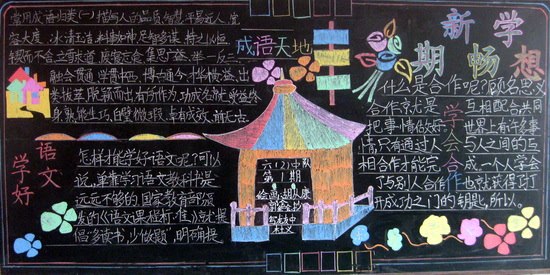 常用成语归类(一)描写人的品质智慧:平易近人、宽
宏大度、冰清玉洁、料事如神、足智多谋、持之以恒
锲而不舍、废寝忘食、集思广益、举一反三
融会贯通、学贯中西、博古通今、才华横溢、出
类拔萃、脱颖而出、有所作为、功成名就
身、熟能生巧、白璧微瑕、卓有成效、前无古
成语天地
新学
期畅想
什么是合作呢?顾名思义
合作就是 互相配合共同
把事情做好。世界上有许多事
情只有通过人与人之间的互
相合作才能完成。一个人学会
了与别人合作也就获得了打
开成功之门的钥匙,所以。
学会合作
学好
语文
怎样才能学好语文呢?可以
说,单靠学习语文教科书是
远远不够的,国家教育部颁
发的《语文课程标准》就
倡“多读书,少做题”,明确提
六(2)中队
第1期